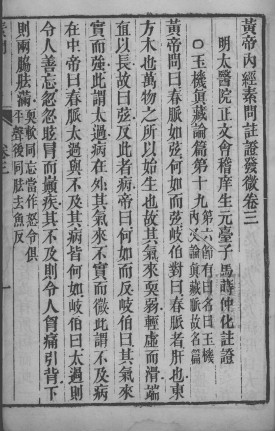 黃帝內經素問註證發微卷三
明太醫院正文會稽庠生元臺子馬蒔仲化註證
○玉機眞藏論篇第十九
第六節有曰名曰玉機
內又論眞藏脈故名篇
黃帝問曰春脈如弦何如而弦岐伯對曰春脈者肝也東
方木也萬物之所以始生也故其氣來耎弱輕虛而滑端
直以長故曰弦反此者病帝曰何如而反岐伯曰其氣來
實而強此謂太過病在外其氣來不實而微此謂不及病
在中帝曰春脈太過與不及其病皆何如岐伯曰太過則
令人善忘忽忽眩冒而巔疾其不及則令人胷痛引背下
則兩脇胠滿
耎軟同忘當作怒令俱
平聲後同胠去魚反
卷三
一